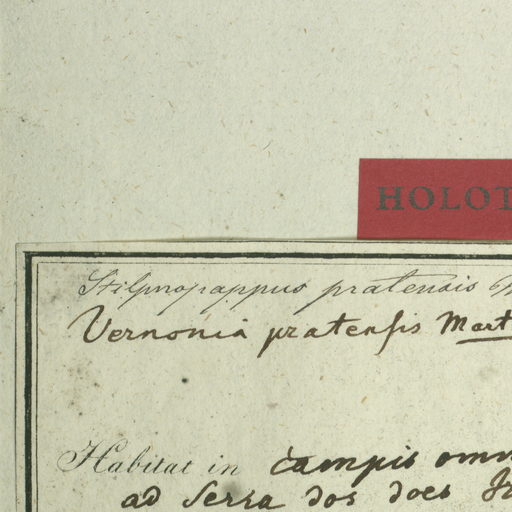 HOLOT
Stilpnopappus pratensis
Vernonia pratensis Mart
Habitat in campis omn
ad Serra dos does